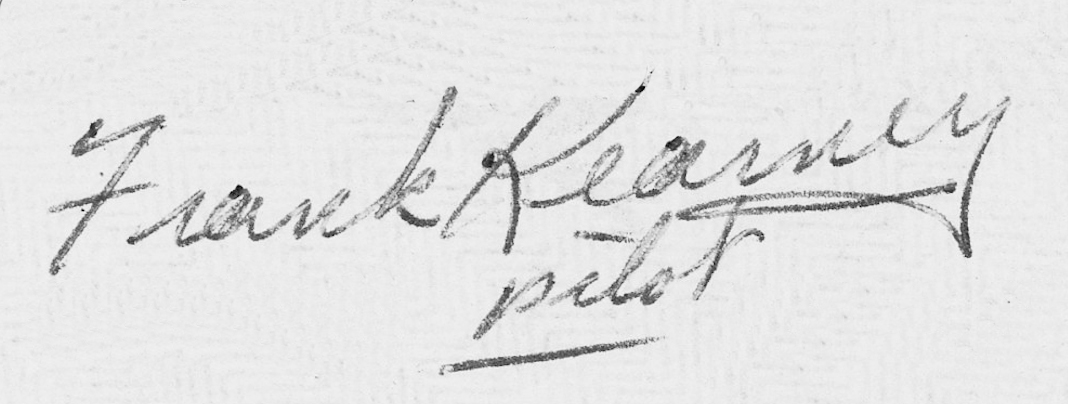 Frank Kearney
pilot